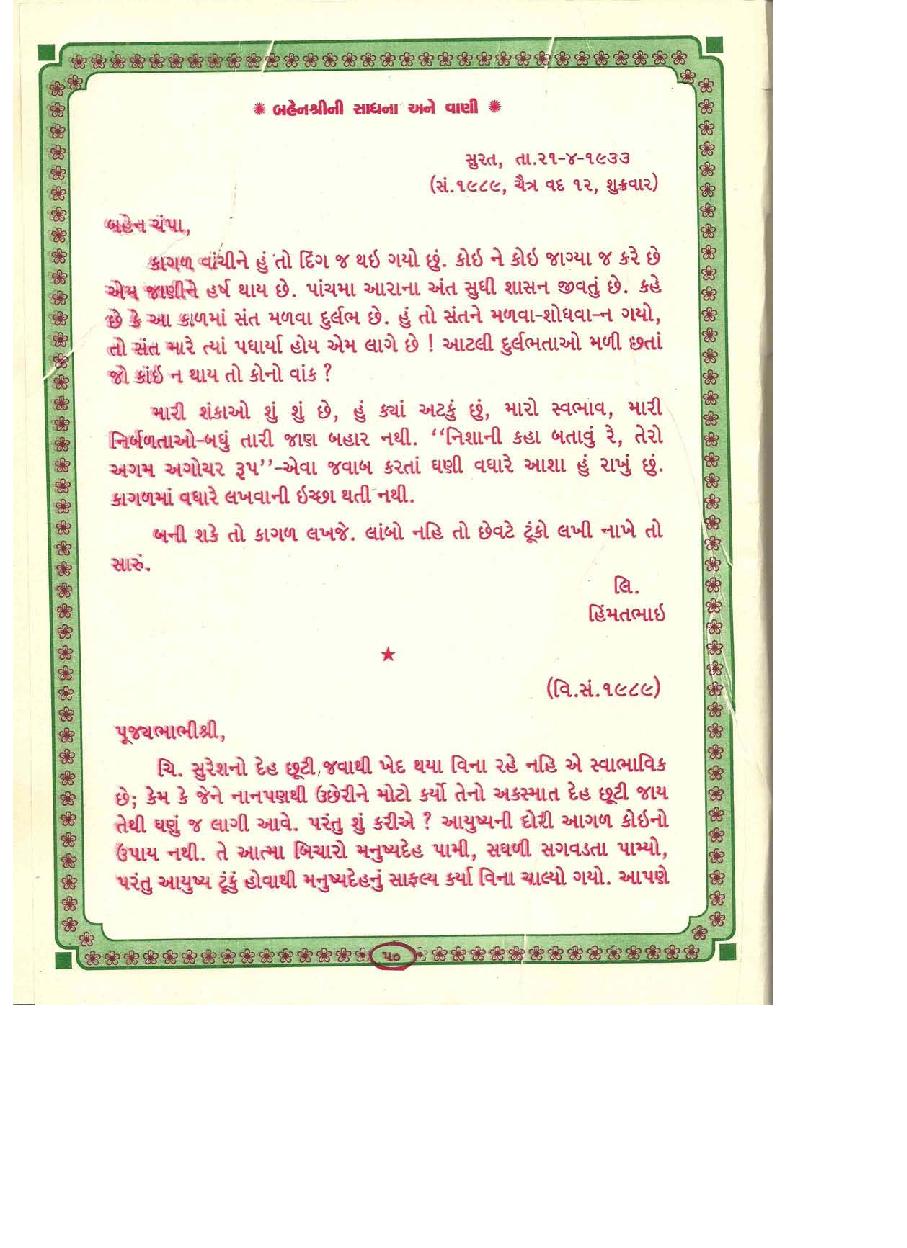 ✺ બહેનશ્રીની સાધના અને વાણી ✺
સુરત, તા.૨૧-૪-૧૯૩૩
(સં.૧૯૮૯, ચૈત્ર વદ ૧૨, શુક્રવાર)
બહેન ચંપા,
કાગળ વાંચીને હું તો દિંગ જ થઇ ગયો છું. કોઇ ને કોઇ જાગ્યા જ કરે છે
એમ જાણીને હર્ષ થાય છે. પાંચમા આરાના અંત સુધી શાસન જીવતું છે. કહે
છે કે આ કાળમાં સંત મળવા દુર્લભ છે. હું તો સંતને મળવા-શોધવા-ન ગયો,
તો સંત મારે ત્યાં પધાર્યા હોય એમ લાગે છે ! આટલી દુર્લભતાઓ મળી છતાં
જો કાંઇ ન થાય તો કોનો વાંક ?
મારી શંકાઓ શું શું છે, હું ક્યાં અટકું છું, મારો સ્વભાવ, મારી
નિર્બળતાઓ-બધું તારી જાણ બહાર નથી. “નિશાની કહા બતાવું રે, તેરો
અગમ અગોચર રૂપ”-એવા જવાબ કરતાં ઘણી વધારે આશા હું રાખું છું.
કાગળમાં વધારે લખવાની ઇચ્છા થતી નથી.
બની શકે તો કાગળ લખજે. લાંબો નહિ તો છેવટે ટૂંકો લખી નાખે તો
સારું.
લિ.
હિંમતભાઇ
★
(વિ.સં.૧૯૮૯)
પૂજ્યભાભીશ્રી,
ચિ. સુરેશનો દેહ છૂટી જવાથી ખેદ થયા વિના રહે નહિ એ સ્વાભાવિક
છે; કેમ કે જેને નાનપણથી ઉછેરીને મોટો કર્યો તેનો અકસ્માત દેહ છૂટી જાય
તેથી ઘણું જ લાગી આવે. પરંતુ શું કરીએ ? આયુષ્યની દોરી આગળ કોઇનો
ઉપાય નથી. તે આત્મા બિચારો મનુષ્યદેહ પામી, સઘળી સગવડતા પામ્યો,
પરંતુ આયુષ્ય ટૂંકું હોવાથી મનુષ્યદેહનું સાફલ્ય કર્યા વિના ચાલ્યો ગયો. આપણે
૫૦